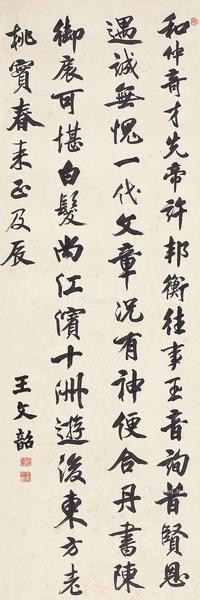 和仲奇才先帝許邦衡往事玉音詢昔賢恩
遇誠無愧一代文章況有神便合丹書陳
御扆可堪白髮尚江濱十洲遊後東方老
桃實春来正及辰
王文韶